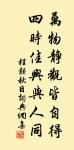 萬物靜觀皆自得
四時佳興與人同
程顥秋日詞典網集